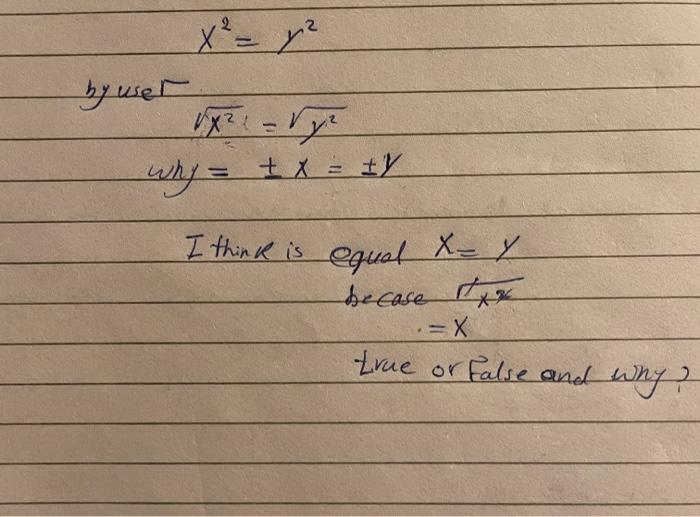 x² = y²
by use √
√x² = √y²
why = ± x = ±y
I think is equal x = y
becase √x²
= x
true or False and why?